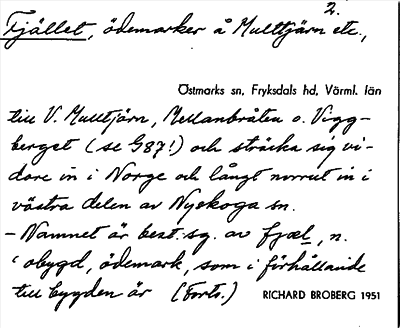 2.
Fjället, ödemarker å Multtjärn etc.,
Östmarks sn, Fryksdals hd, Värml. län
till V. Multtjärn, Mellanbråten o. Vigg-
berget (se G87!) och sträcka sig vi-
dare in i Norge och långt norrut in i
västra delen av Nyskoga sn.
- Namnet är best. sg. av fjæl, n.
'obygd, ödemark, som i förhållande
till bygden är (Forts.)
RICHARD BROBERG 1951